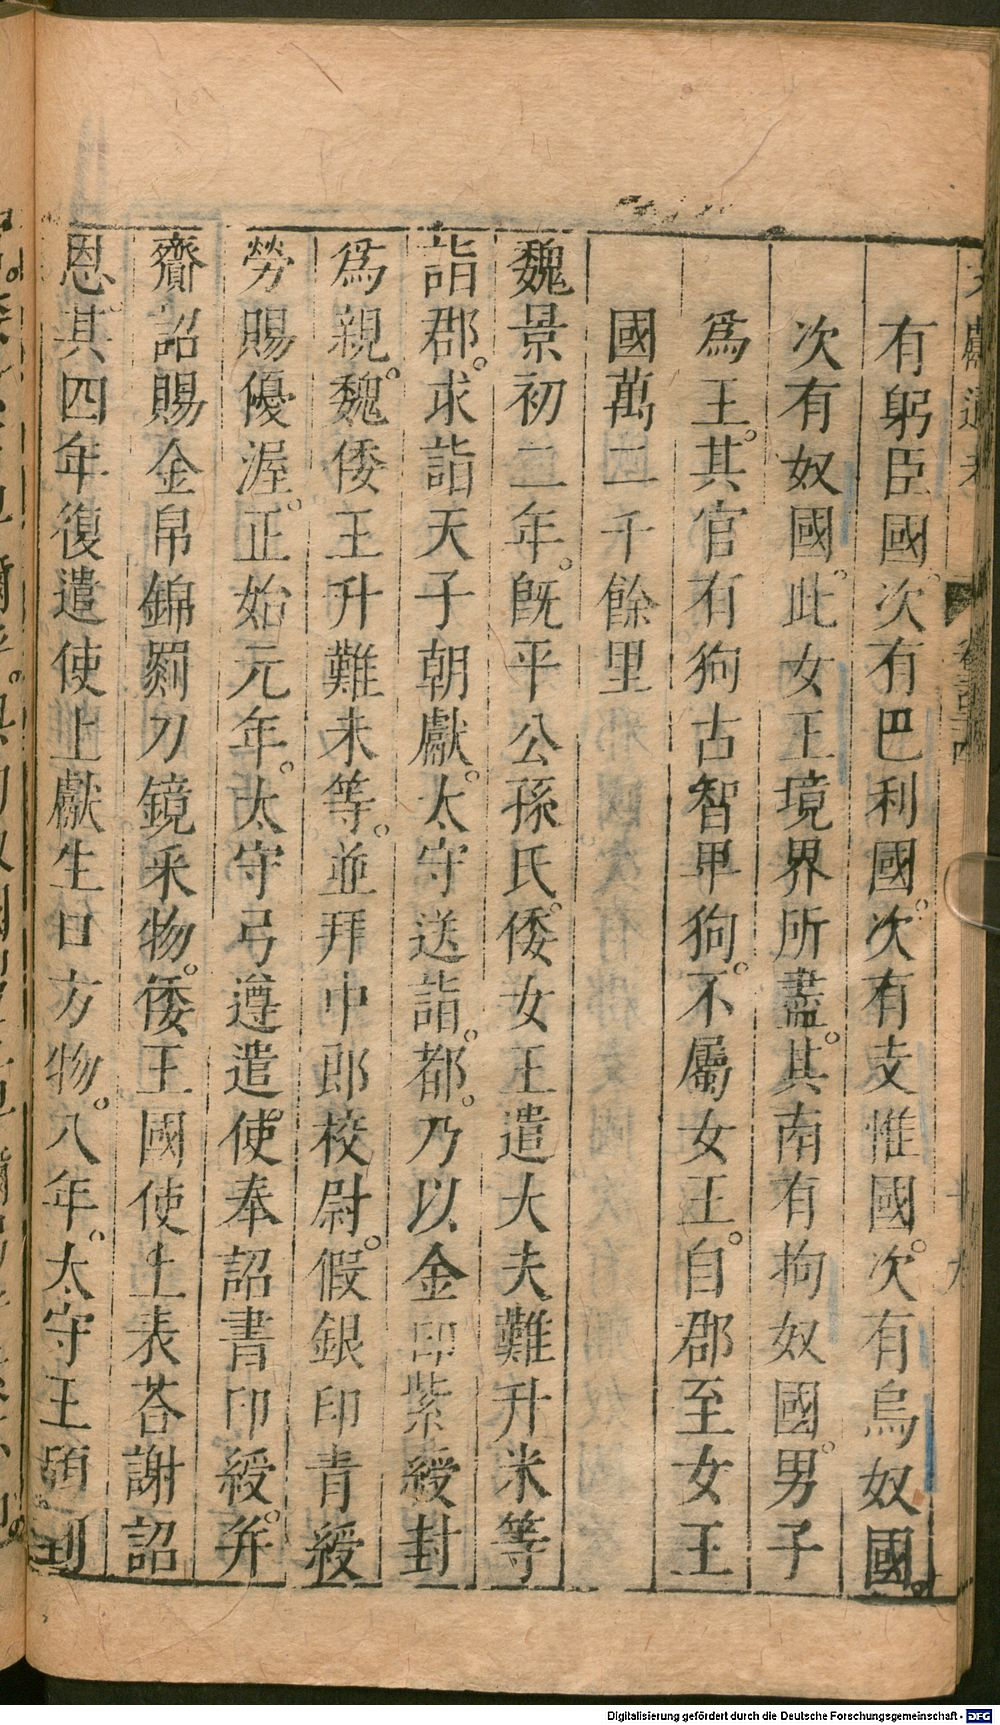 有躬臣國次有巴利國次有支惟國次有烏奴國
次有奴國此女王境界所盡其南有拘奴國男子
爲王其官有狗古智卑狗不屬女王自郡至女王
國萬二千餘里
魏景初二年旣平公孫氏倭女王遣大夫難升米等
詣郡求詣天子朝獻太守送詣都乃以金印紫綬封
爲親魏倭王升難未等並拜中郎校尉假銀印青綬
勞賜優渥正始元年太守弓遵遣使奉詔書印綬并
齎詔賜金帛錦罽刀鏡采物倭王國使上表荅謝詔
恩其四年復遣使上獻生口方物八年太守王頎到
Digitalisierung gefördert durch die Deutsche Forschungsgemeinschaft - DFG